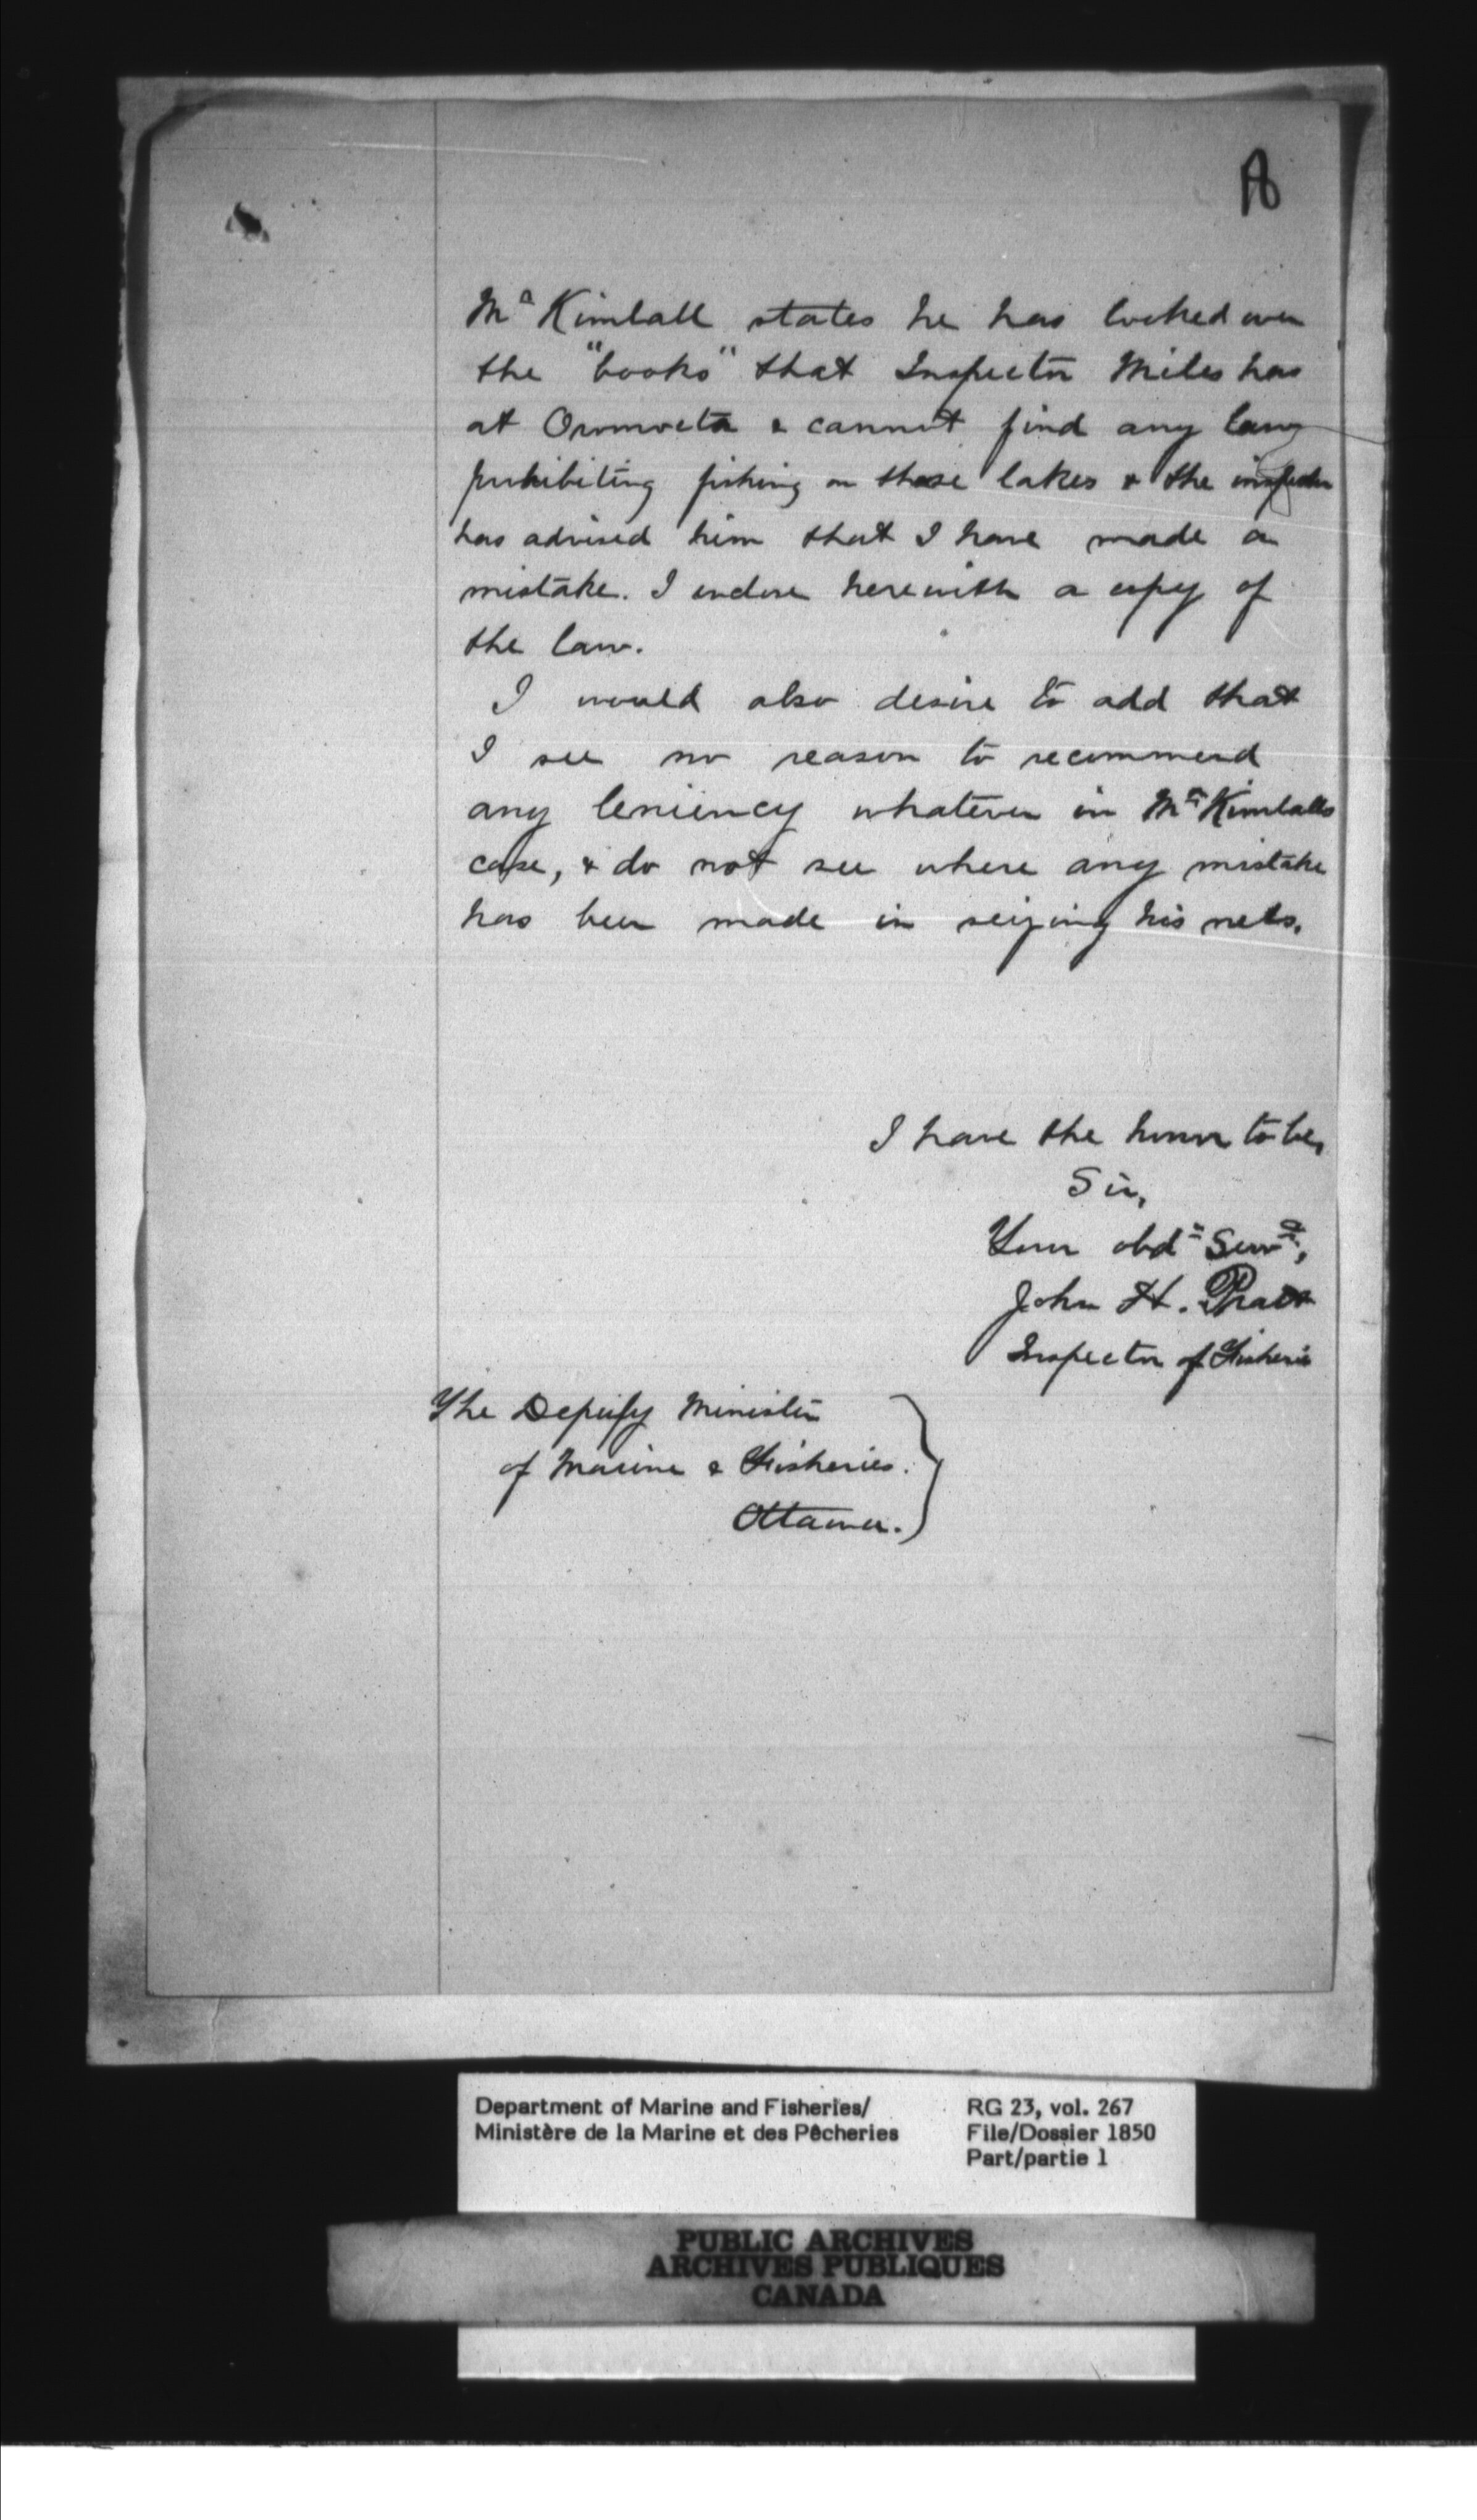 Mr Kimball states he has looked over
the "books" that Inspector Miles has
at Oromocto & cannot find any law
prohibiting fishing on these lakes & the inspector
has advised him that I have made a
mistake. I enclose herewith a copy of
the law.
I would also desire to add that
I see no reason to recommend
any leniency whatever in Mr Kimballs
case, & do not see where any mistake
has been made in seizing his nets.
I have the honor to be,
Sir,
Your obdt Servt,
John H. Pratt
Inspector of Fisheries
The Deputy Minister
of Marine & Fisheries.
Ottawa.
Department of Marine and Fisheries/
Ministère de la Marine et des Pêcheries
RG 23, vol. 267
File/Dossier 1850
Part/partie 1
PUBLIC ARCHIVES
ARCHIVES PUBLIQUES
CANADA